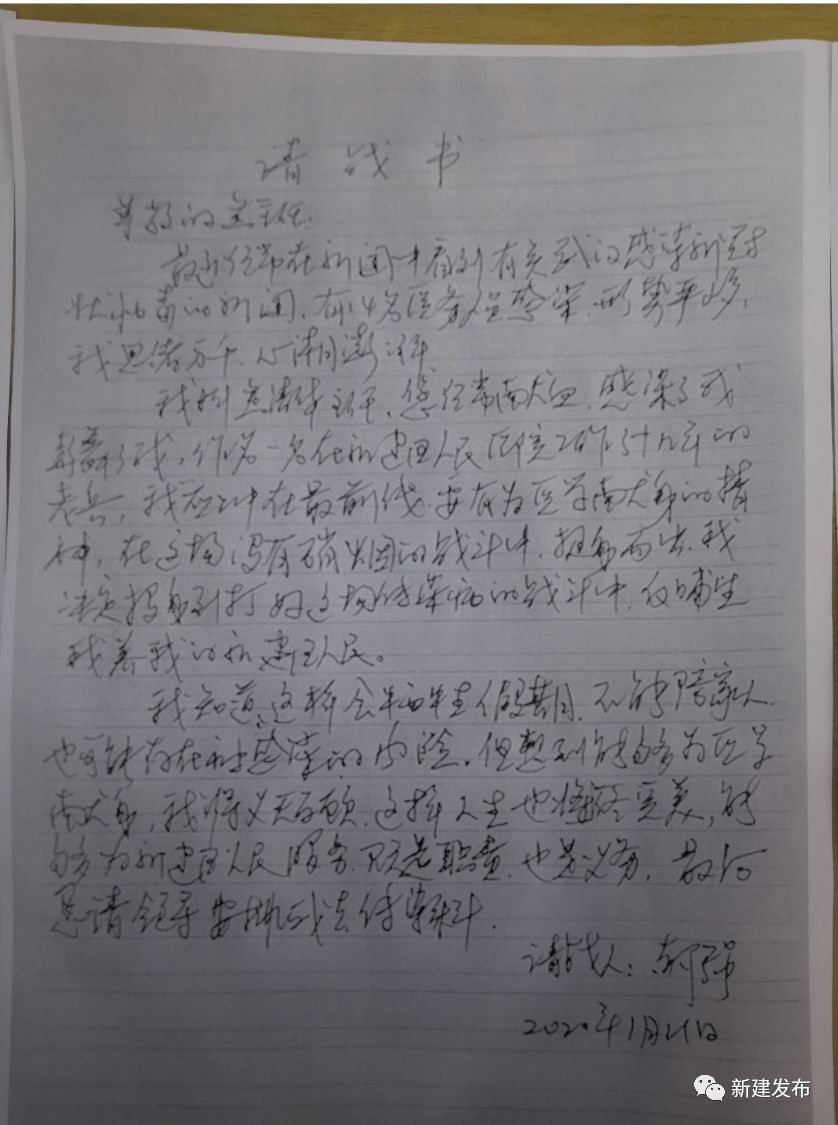 请战书
尊敬的 主任:
最近经常在新闻中看到有关武汉感染新冠
状病毒的新闻,有14名医务人员感染,形势严峻,
我思绪万千,心潮澎湃
我 主任,您经常献血,感染了我
了我,作为一名在新建区人民医院工作 十几年的
老兵,我应 冲在最前线,要有为医学献身的精
神,在这场没有硝烟的战斗中,挺身而出,我
决定投身到打好这场传染病的战斗中,
我养我的新建区人民。
我知道,这样会牺牲假期,不能陪家人,
也可能存在被感染的风险。但想到能够为医学
献身,我将义无反顾,这样人生也将 完美,能
够为新建区人民服务,既是职责,也是义务,
恳请领导安排我去传染科。
请战人:
2020年1月21日
新建发布